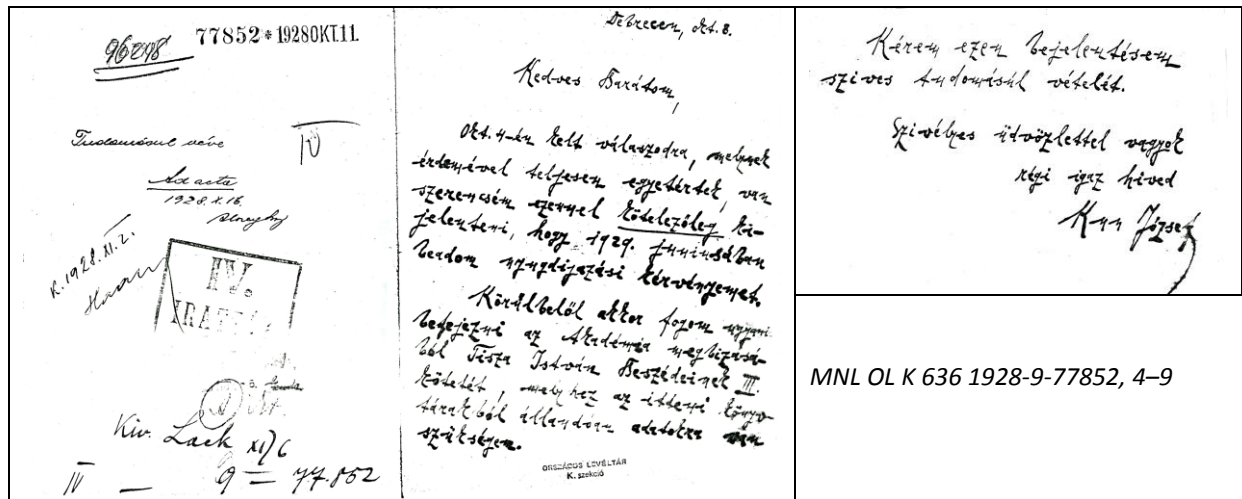 96298
77852 * 1928OKT.11.
Tudomásul véve
IV
Ad acta
1928. X. 16.
K. 1928. XI. 2.
IV.
IRATTÁ
Kiv. Lack XI/6
IV — 9 = 77.852
Debrecen, Okt. 8.
Kedves Barátom,
Okt. 4-én kelt válaszodra, melynek
érdemével teljesen egyetértek, van
szerencsém ezennel kötelezőleg ki-
jelenteni, hogy 1929. juniusában
beadom nyugdijazási kérvényemet.
Körülbelől akkor fogom ugyanis
befejezni az Akadémia megbizásá-
ból Tisza István Beszédeinek III.
kötetét, melyhez az itteni könyv-
tárakból állandóan adatokra van
szükségem.
ORSZÁGOS LEVÉLTÁR
K. szekció
Kérem ezen bejelentésem
szives tudomásúl vételét.
Szivélyes üdvözlettel vagyok
régi igaz hived
Kun József
MNL OL K 636 1928-9-77852, 4–9